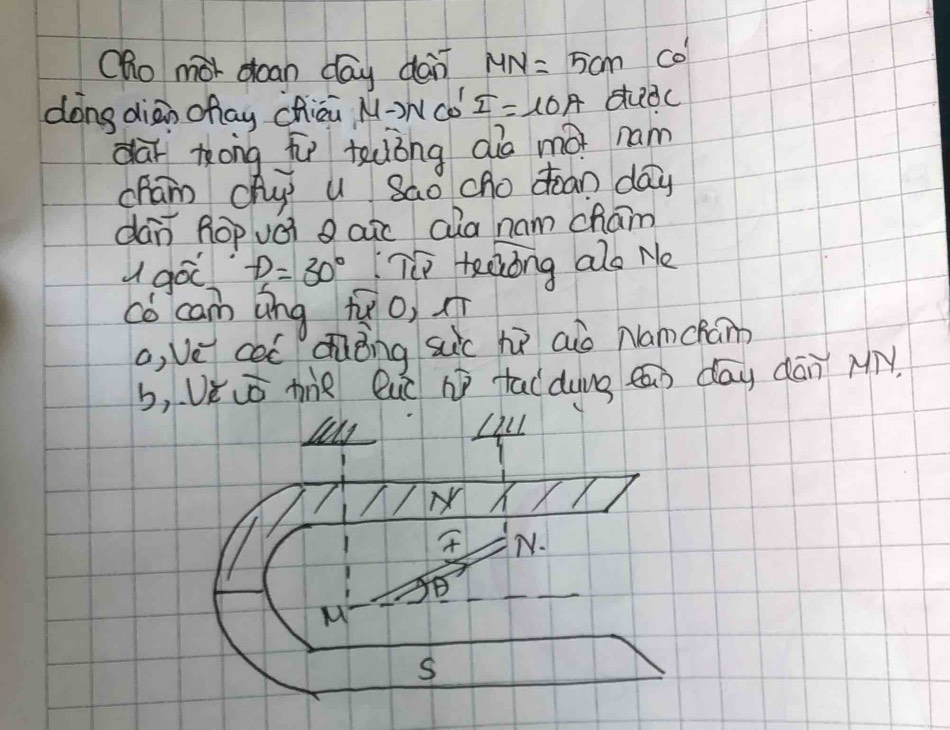 Cho một đoạn dây dẫn MN = 5cm có
dòng điện chạy chiều M->N có I = 10A được
đặt trong từ trường của một nam
châm chữ U sao cho đoạn dây
dẫn hợp với 2 cực của nam châm
1 góc θ = 30° : Từ trường của Nc
có cảm ứng từ 0,1T
a, Vẽ các đường sức từ của Nam châm
b, Vẽ và tính lực từ tác dụng lên dây dẫn MN.
N
I
N.
θ
M
S